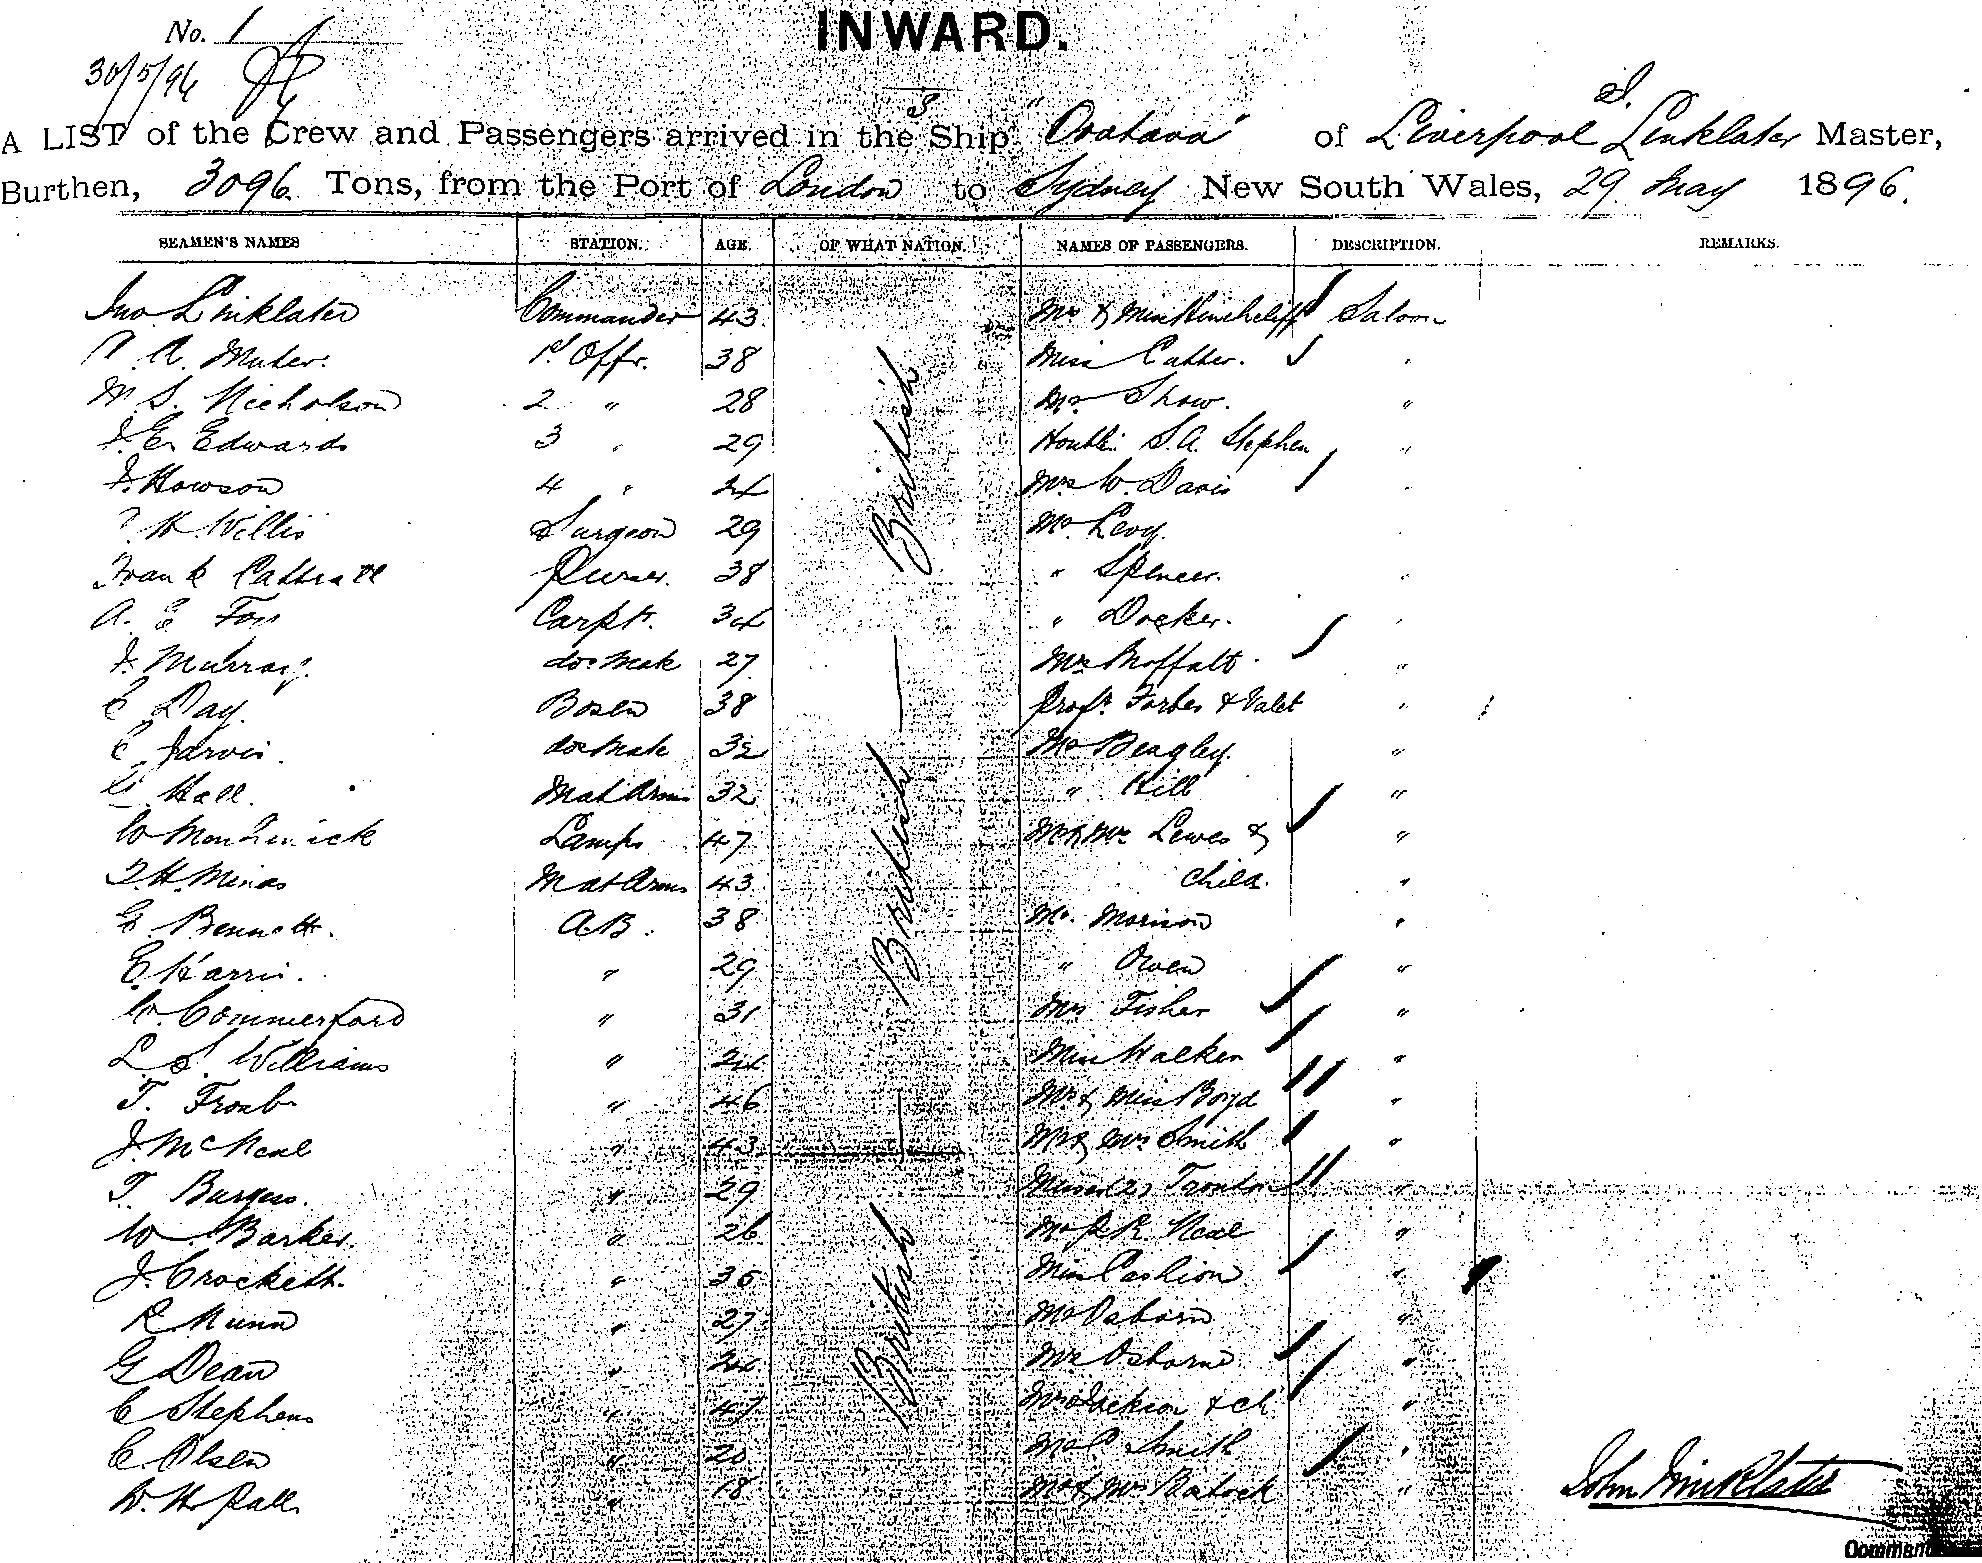 No. 1
INWARD.
30/5/96
A LIST of the Crew and Passengers arrived in the Ship "Orotava" of Liverpool J. Linklater Master,
Burthen, 3096 Tons, from the Port of London to Sydney New South Wales, 29 May 1896.
SEAMEN'S NAMES STATION. AGE. OF WHAT NATION. NAMES OF PASSENGERS. DESCRIPTION. REMARKS.
Jno Linklater Commander 43 British Mr & Miss Hinchcliff Saloon
A. Maher. 1st Offr. 38 Miss Catter. "
W. S. Nicholson 2 " 28 Mr Shaw. "
J. E. Edwards 3 " 29 Honble S. A. Stephen "
J. Howson 4 " 24 Mrs W. Davis "
H. Willis Surgeon 29 Mr Levy. "
Frank Cattrall Purser. 38 " Spencer. "
A. E. Fox Carptr. 34 " Docker. "
J. Murray. do. Mate 27 Mrs Moffatt. "
C Day. Bosen 38 Profr. Forbes & Valet "
C. Jarvis. do Mate 32 British Mr Beagley. "
G. Hall. Mat Arms 32 " Hill "
W Lamps 47 Mr & Mrs Lewes & "
J. H. Minas Mat Arms 43 Child. "
G. Bennett. A.B. 38 Mr. Morison "
E. Harris. " 29 " Owen "
W. Commerford " 31 Mrs Fisher "
L. S. Williams " 24 Miss Walker "
T. Frost " 46 Mr & Miss Boyd "
J. McNeal " 43 Mr & Mrs Smith "
T. Burgess. " 29 Misses (2) "
W. Barker. " 26 British Mr P. R. Neal "
J. Crockett. " 35 Miss Cashion "
R. Nunn " 27 Mr Osborn "
G Dean " 24 Mrs Osborne "
C Stephens " 47 Mrs Jackson & Ch "
C Olsen " 20 Mr C Smith "
W. H. Pall " 18 Mr & Mrs "
John Linklater